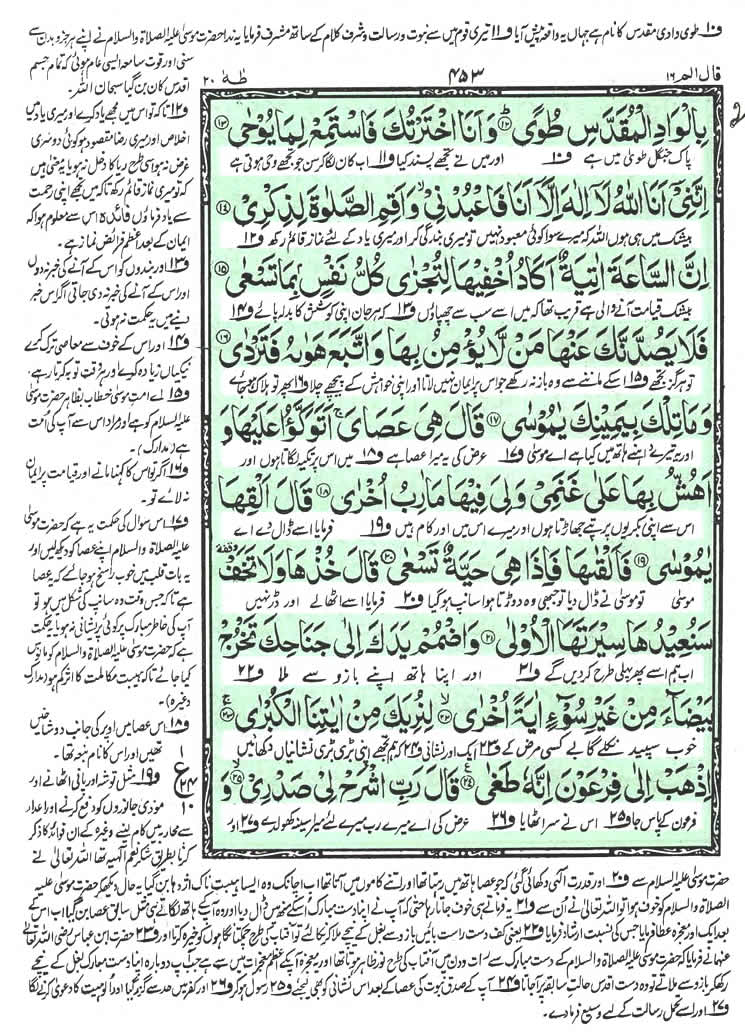 ف۱۰ طویٰ وادی مقدس کا نام ہے جہاں یہ واقعہ پیش آیا ف۱۱ تیری قوم میں سے نبوت و رسالت و شرف کلام کے ساتھ مشرف فرمایا یہ ندا حضرت موسیٰ علیہ الصلاۃ والسلام نے اپنے ہر جزو بدن سے
سنی اور قوت سامعہ ایسی عام ہوئی کہ تمام جسم
اقدس کان بن گیا سبحان اللہ۔
قال الم ۱۶
۴۵۳
طٰهٰ ۲۰
بِالْوَادِ الْمُقَدَّسِ طُوًى ۱۲ وَاَنَا اخْتَرْتُكَ فَاسْتَمِعْ لِمَا يُوْحٰى ۱۳
پاک جنگل طویٰ میں ہے ف۱۰ اور میں نے تجھے پسند کیا ف۱۱ اب کان لگا کر سن جو تجھے وحی ہوتی ہے
اِنَّنِيْٓ اَنَا اللّٰهُ لَآ اِلٰهَ اِلَّآ اَنَا فَاعْبُدْنِيْ ۙ وَاَقِمِ الصَّلٰوةَ لِذِكْرِيْ ۱۴
بیشک میں ہی ہوں اللہ کہ میرے سوا کوئی معبود نہیں تو میری بندگی کر اور میری یاد کے لئے نماز قائم رکھ ف۱۲
اِنَّ السَّاعَةَ اٰتِيَةٌ اَكَادُ اُخْفِيْهَا لِتُجْزٰى كُلُّ نَفْسٍۭ بِمَا تَسْعٰى ۱۵
بیشک قیامت آنے والی ہے قریب تھا کہ میں اسے سب سے چھپاؤں ف۱۳ کہ ہر جان اپنی کوشش کا بدلہ پائے ف۱۴
فَلَا يَصُدَّنَّكَ عَنْهَا مَنْ لَّا يُؤْمِنُ بِهَا وَاتَّبَعَ هَوٰىهُ فَتَرْدٰى ۱۶
تو ہرگز تجھے ف۱۵ اسکے ماننے سے وہ باز نہ رکھے جو اس پر ایمان نہیں لاتا اور اپنی خواہش کے پیچھے چلا ف۱۶ پھر تو ہلاک ہو جائے
وَمَا تِلْكَ بِيَمِيْنِكَ يٰمُوْسٰى ۱۷ قَالَ هِيَ عَصَايَ ۚ اَتَوَكَّؤُا عَلَيْهَا وَ
اور یہ تیرے داہنے ہاتھ میں کیا ہے اے موسیٰ ف۱۷ عرض کی یہ میرا عصا ہے ف۱۸ میں اس پر تکیہ لگاتا ہوں اور
اَهُشُّ بِهَا عَلٰى غَنَمِيْ وَلِيَ فِيْهَا مَاٰرِبُ اُخْرٰى ۱۸ قَالَ اَلْقِهَا
اس سے اپنی بکریوں پر پتے جھاڑتا ہوں اور میرے اس میں اور کام ہیں ف۱۹ فرمایا اسے ڈال دے اے
يٰمُوْسٰى ۱۹ فَاَلْقٰىهَا فَاِذَا هِيَ حَيَّةٌ تَسْعٰى ۲۰ قَالَ خُذْهَا وَلَا تَخَفْ
موسیٰ تو موسیٰ نے ڈال دیا تو جبھی وہ دوڑتا ہوا سانپ ہو گیا ف۲۰ فرمایا اسے اٹھالے اور ڈر نہیں
سَنُعِيْدُهَا سِيْرَتَهَا الْاُوْلٰى ۲۱ وَاضْمُمْ يَدَكَ اِلٰى جَنَاحِكَ تَخْرُجْ
اب ہم اسے پھر پہلی طرح کر دیں گے ف۲۱ اور اپنا ہاتھ اپنے بازو سے ملا ف۲۲
بَيْضَآءَ مِنْ غَيْرِ سُوْٓءٍ اٰيَةً اُخْرٰى ۲۲ لِنُرِيَكَ مِنْ اٰيٰتِنَا الْكُبْرٰى ۲۳
خوب سپید نکلے گا بے کسی مرض کے ف۲۳ ایک اور نشانی ف۲۴ کہ ہم تجھے اپنی بڑی بڑی نشانیاں دکھائیں
اِذْهَبْ اِلٰى فِرْعَوْنَ اِنَّهٗ طَغٰى ۲۴ قَالَ رَبِّ اشْرَحْ لِيْ صَدْرِيْ ۲۵ وَ
فرعون کے پاس جا ف۲۵ اس نے سر اٹھایا ف۲۶ عرض کی اے میرے رب میرے لئے میرا سینہ کھول دے ف۲۷ اور
ف۱۲ تاکہ تو اس میں مجھے یاد کرے اور میری یاد میں
اخلاص اور میری رضا مقصود ہو کوئی دوسری
غرض نہ ہو اسی طرح ریا کا دخل نہ ہو یا یہ معنیٰ ہیں
کہ تو میری نماز قائم رکھ تاکہ میں تجھے اپنی رحمت
سے یاد فرماؤں فائدہ اس سے معلوم ہوا کہ
ایمان کے بعد اعظم فرائض نماز ہے۔
ف۱۳ اور بندوں کو اس کے آنے کی خبر نہ دوں
اور اس کے آنے کی خبر نہ دی جاتی اگر اس خبر
دینے میں یہ حکمت نہ ہوتی۔
ف۱۴ اور اس کے خوف سے معاصی ترک کرے
نیکیاں زیادہ کرے اور ہر وقت توبہ کرتا رہے۔
ف۱۵ اے امت موسیٰ خطاب بظاہر حضرت موسیٰ
علیہ السلام کو ہے اور مراد اس سے آپ کی امت
ہے (مدارک)۔
ف۱۶ اگر تو اس کا کہنا مانے اور قیامت پر ایمان
نہ لائے تو۔
ف۱۷ اس سوال کی حکمت یہ ہے کہ حضرت موسیٰ
علیہ الصلاۃ والسلام اپنے عصا کو دیکھ لیں اور
یہ بات قلب میں خوب راسخ ہو جائے کہ یہ عصا
ہے تاکہ جس وقت وہ سانپ کی شکل میں ہو تو
آپ کی خاطر مبارک پر کوئی پریشانی نہ ہو یا یہ حکمت
ہے کہ حضرت موسیٰ علیہ الصلاۃ والسلام کو مانوس
کیا جائے تاکہ ہیبت مکالمت کا اثر کم ہو (مدارک
وغیرہ)۔
ف۱۸ اس عصا میں اوپر کی جانب دو شاخیں
تھیں اور اس کا نام نبعہ تھا۔
ف۱۹ مثل توشہ اور پانی اٹھانے اور
موذی جانوروں کو دفع کرنے اور اعداء
سے محاربہ میں کام لینے وغیرہ کے ان فوائد کا ذکر
کرنا بطریق شکر نعم الٰہیہ تھا اللہ تعالیٰ نے
۱
ع
۲۴
۱۰
حضرت موسیٰ علیہ السلام سے ف۲۰ اور قدرت الٰہی دکھائی گئی کہ جو عصا ہاتھ میں رہتا تھا اور اتنے کاموں میں آتا تھا اب اچانک وہ ایسا ہیبت ناک اژدہا بن گیا یہ حال دیکھ کر حضرت موسیٰ علیہ
الصلاۃ والسلام کو خوف ہوا تو اللہ تعالیٰ نے ان سے ف۲۱ یہ فرماتے ہی خوف جاتا رہا حتیٰ کہ آپ نے اپنا دست مبارک اسکے منہ میں ڈال دیا اور وہ آپ کے ہاتھ لگاتے ہی مثل سابق عصا بن گیا اب اس کے
بعد ایک اور معجزہ عطا فرمایا جس کی نسبت ارشاد فرمایا ف۲۲ یعنی کف دست راست بائیں بازو سے بغل کے نیچے ملا کر نکالئے تو آفتاب کی طرح چمکتا نگاہوں کو خیرہ کرتا اور ف۲۳ حضرت ابن عباس رضی اللہ تعالیٰ
عنہما نے فرمایا کہ حضرت موسیٰ علیہ الصلاۃ والسلام کے دست مبارک سے رات و دن میں آفتاب کی طرح نور ظاہر ہوتا تھا اور یہ معجزہ آپ کے اعظم معجزات میں سے ہے جب آپ دوبارہ اپنا دست مبارک بغل کے نیچے
رکھ کر بازو سے ملاتے تو وہ دست اقدس حالت سابقہ پر آجاتا ف۲۴ آپ کے صدق نبوت کی عصا کے بعد اس نشانی کو بھی لیجئے ف۲۵ رسول ہو کر ف۲۶ اور کفر میں حد سے گزر گیا اور الوہیت کا دعویٰ کرنے لگا
ف۲۷ اور اسے تحمل رسالت کے لئے وسیع فرما دے۔